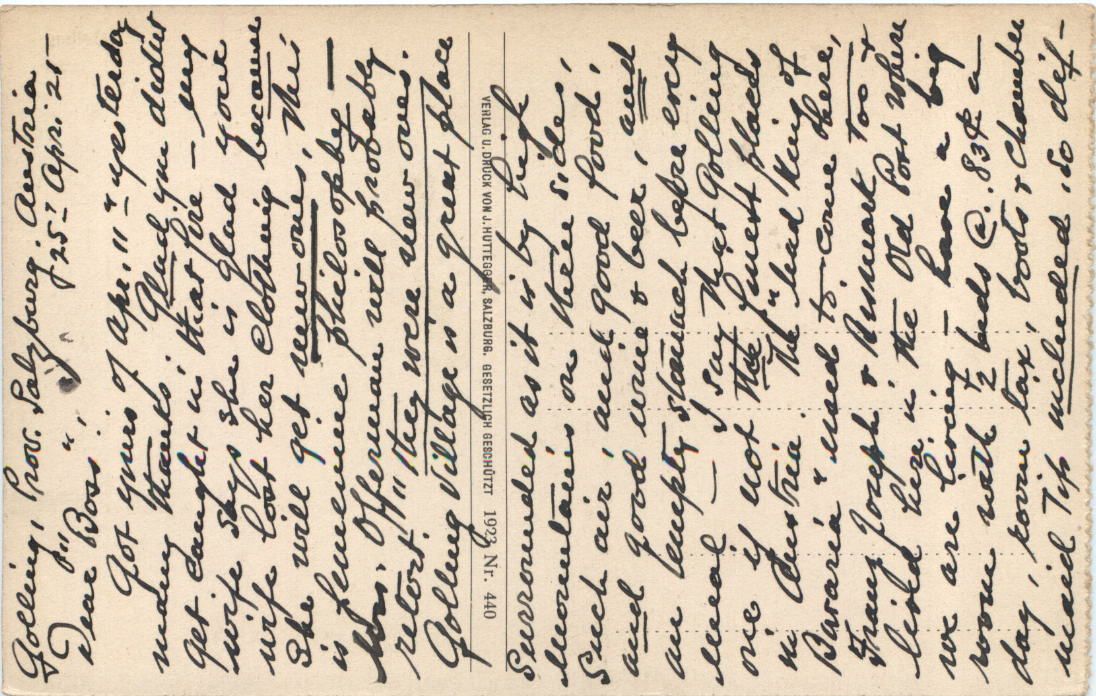 Golling, Prov. Salzburg. Austria
25- Apr. 25-
"Dear Boss",
Got yours of Apr. 11" yesterday
many thanks. Glad you didnt
get caught in that fire — my
wife says she is glad your
wife lost her clothing because
She will get new ones, this
is feminine philosophy —
Mrs. Offerman will probably
retort "they were new ones".
Golling village is a great place
VERLAG U. DRUCK VON J. HUTTEGGER, SALZBURG. GESETZLICH GESCHÜTZT 1923 Nr. 440
Surrounded as it is by high
Mountains on three sides,
Such air, and good food,
and good wine & beer, and
an empty stomach before every
meal — I say that Golling
one if not the finest places
in Austria. The "mad King of
Bavaria" used to come there,
Franz Joseph & Bismark too &
lived here in the Old Post where
we are living — have a big
room with 2 beds @ .83¢ a
day, room tax, boots & chamber
maid Tip included, so dif-